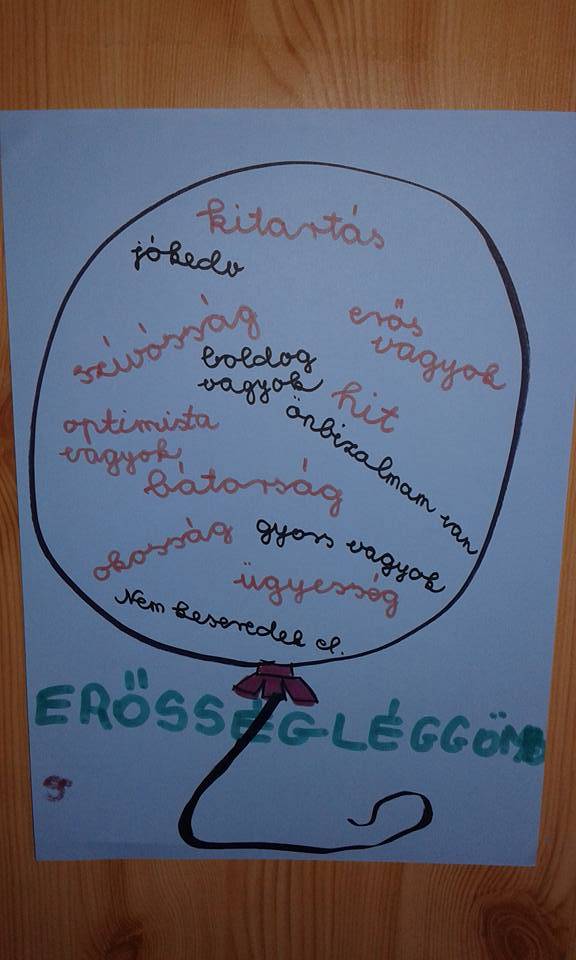 kitartás
jókedv
szívósság
erős
vagyok
boldog
vagyok
hit
önbizalmam van
optimista
vagyok
bátorság
okosság
gyors vagyok
ügyesség
Nem keseredek el.
ERŐSSÉG-LÉGGÖMB